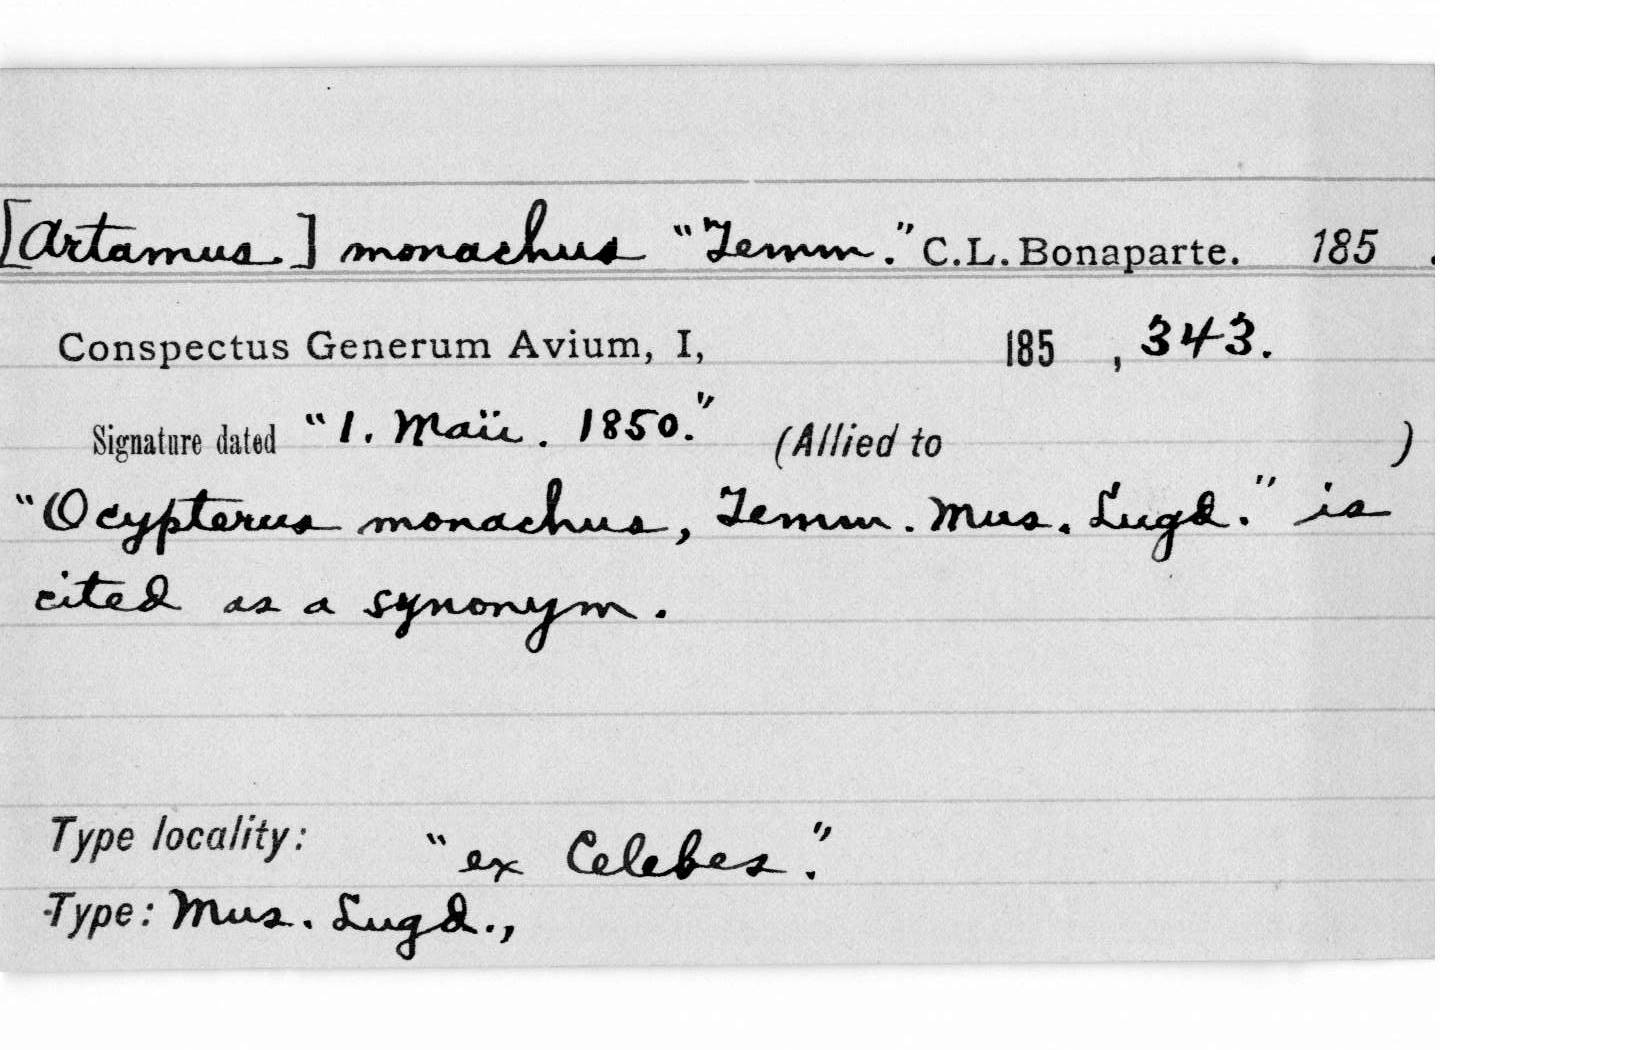 [Artamus.] monachus "Temm." C.L. Bonaparte. 185 .
Conspectus Generum Avium, I, 185 , 343.
Signature dated "1. Maii. 1850." (Allied to )
"Ocypterus monachus, Temm. Mus. Lugd." is
cited as a synonym.
Type locality: "ex Celebes."
Type: Mus. Lugd.,